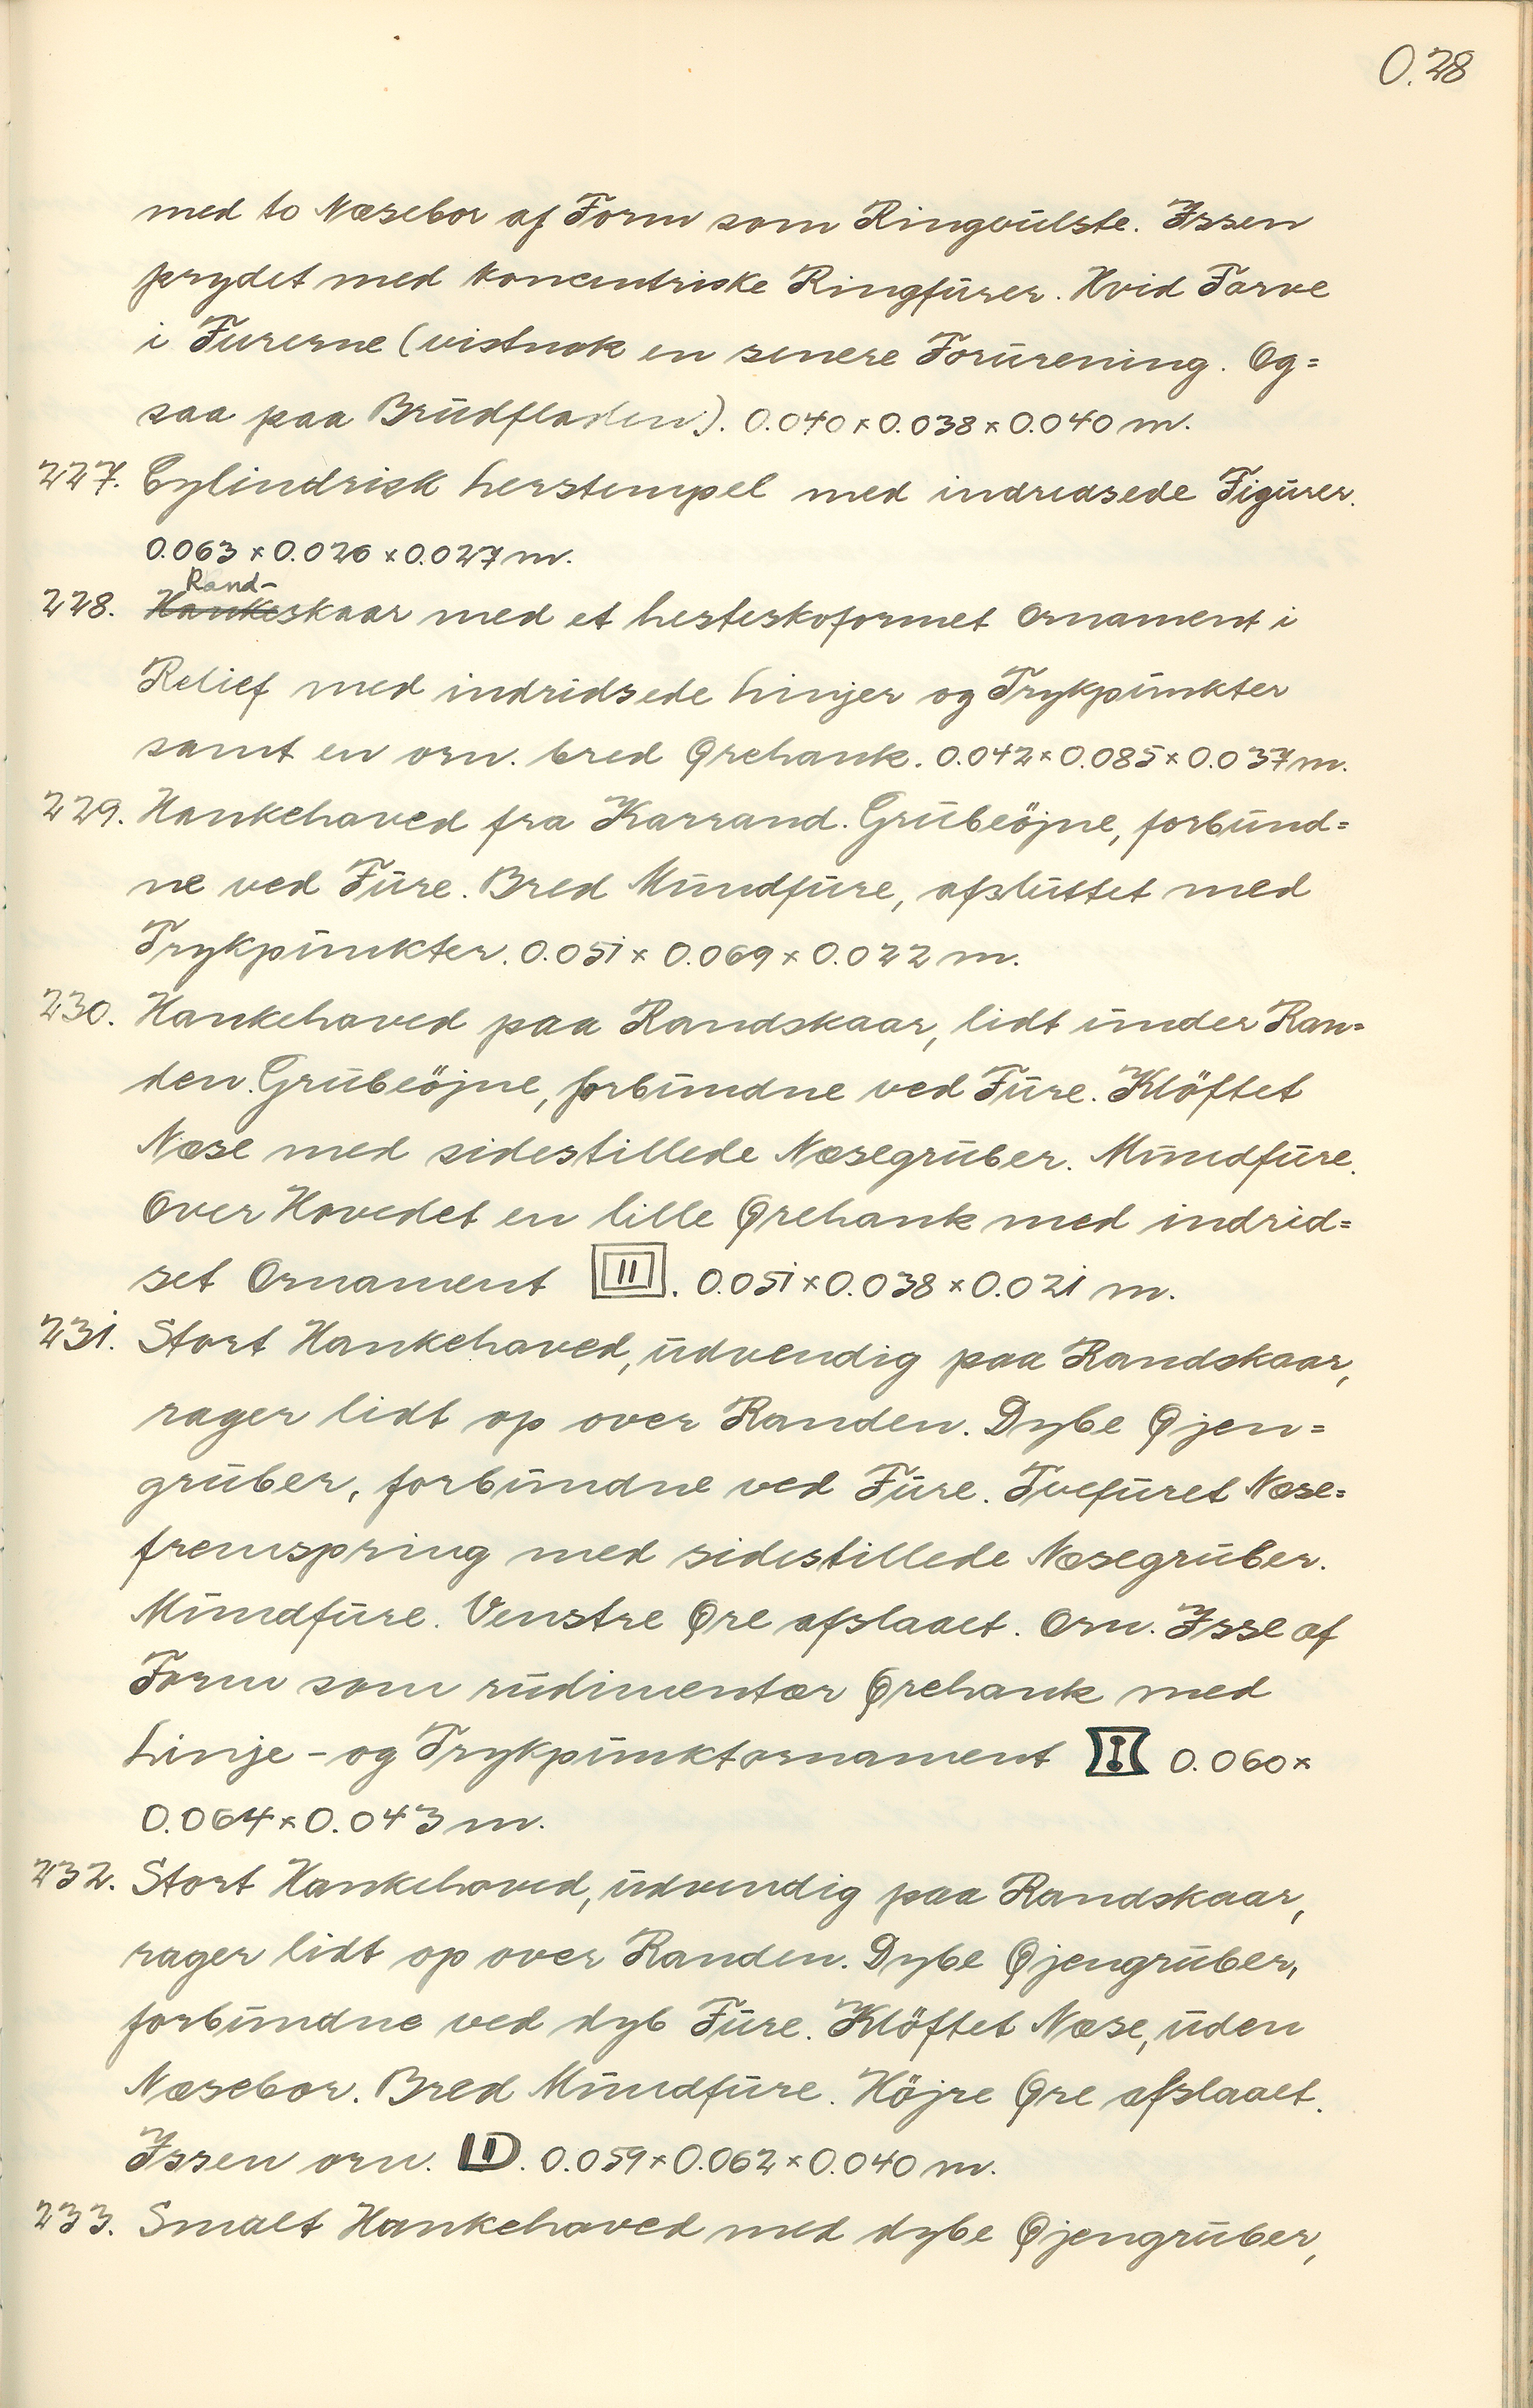 O.28
med to Næsebor af Form som Ringvulste. Issen
prydet med koncentriske Ringfurer. Hvid Farve
i Furerne (vistnok en senere Forurening. Og=
saa paa Brudfladen). 0.040 x 0.038 x 0.040 m.
227. Cylindrisk Lerstempel med indridsede Figurer.
0.063 x 0.026 x 0.027 m.
Rand-
228. Hankeskaar med et hesteskoformet Ornament i
Relief med indridsede Linjer og Trykpunkter
samt en orn. bred Ørehank. 0.042 x 0.085 x 0.037 m.
229. Hankehoved fra Karrand. Grubeöjne, forbund=
ne ved Fure. Bred Mundfure, afsluttet med
Trykpunkter. 0.051 x 0.069 x 0.022 m.
230. Hankehoved paa Randskaar, lidt under Ran=
den. Grubeöjne, forbundne ved Fure. Klöftet
Næse med sidestillede Næsegruber. Mundfure.
Over Hovedet en lille Ørehank med indrid=
set Ornament . 0.051 x 0.038 x 0.021 m.
231. Stort Hankehoved, udvendig paa Randskaar,
rager lidt op over Randen. Dybe Øjen=
gruber, forbundne ved Fure. Tvefuret Næse=
fremspring med sidestillede Næsegruber.
Mundfure. Venstre Øre afslaaet. Orn. Isse af
Form som rudimentær Ørehank med
Linje - og Trykpunktornament 0.060 x
0.064 x 0.043 m.
232. Stort Hankehoved, udvendig paa Randskaar,
rager lidt op over Randen. Dybe Øjengruber,
forbundne ved dyb Fure. Klöftet Næse, uden
Næsebor. Bred Mundfure. Höjre Øre afslaaet.
Issen orn. . 0.059 x 0.062 x 0.040 m.
233. Smalt Hankehoved med dybe Øjengruber,